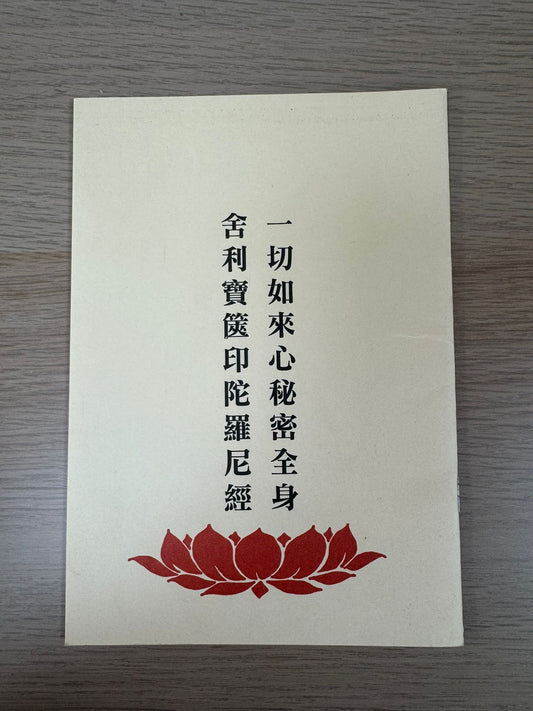 一切如來心秘密全身
舍利寶篋印陀羅尼經